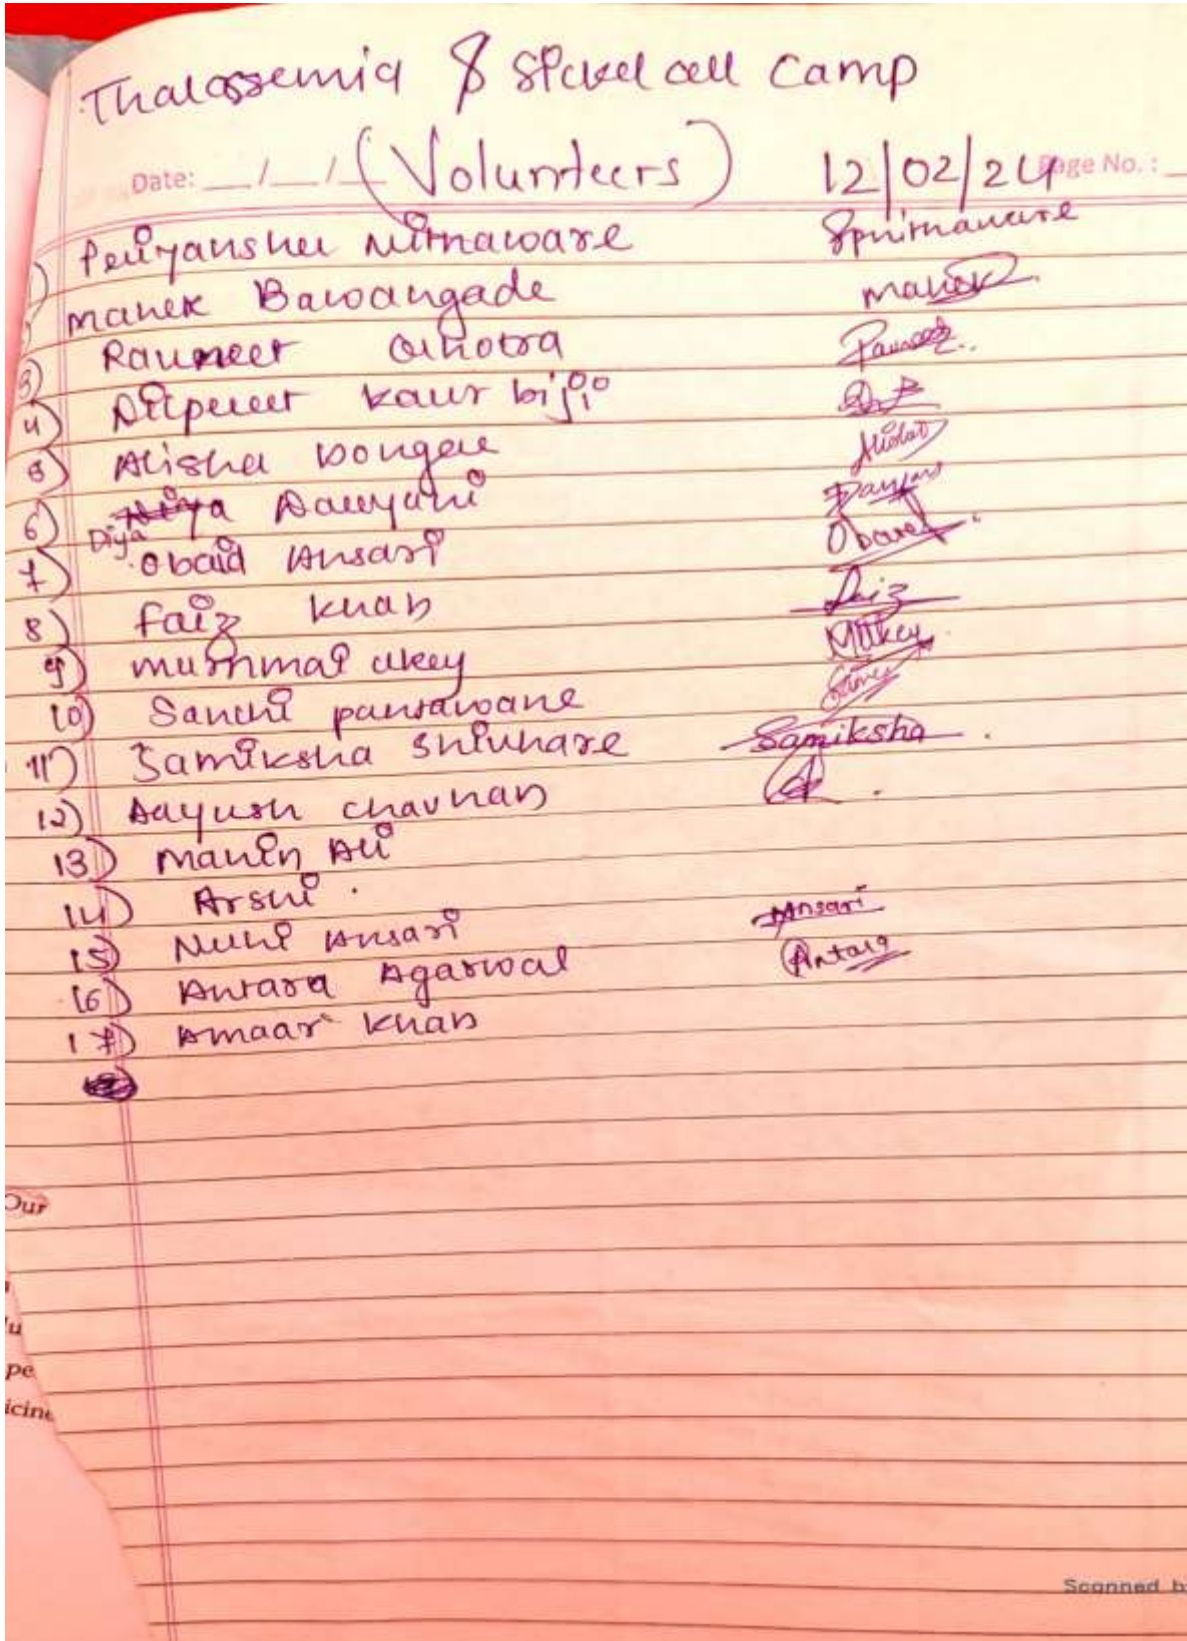 Thalassemia & Sickel cell Camp
Date: __/__/__ (Volunteers) 12/02/24 Page No.:
Priyanshu Nimaware
manek Bawangade manek
3) Rauneet
4) Dilpreet kaur
5) Alisha Dongre
6) Diya
7) Obaid Ansari
8) faiz khan faiz
9) akey MAkey
10) Sanchi pantawane
11) Samiksha Shivhare Samiksha
12) Aayush chavhan
13) Mahin Ali
14) Arshi.
15) Ansari Ansari
16) Antara Agarwal Antara
17) Amaar khan
Our
u
pe
icine
Scanned b